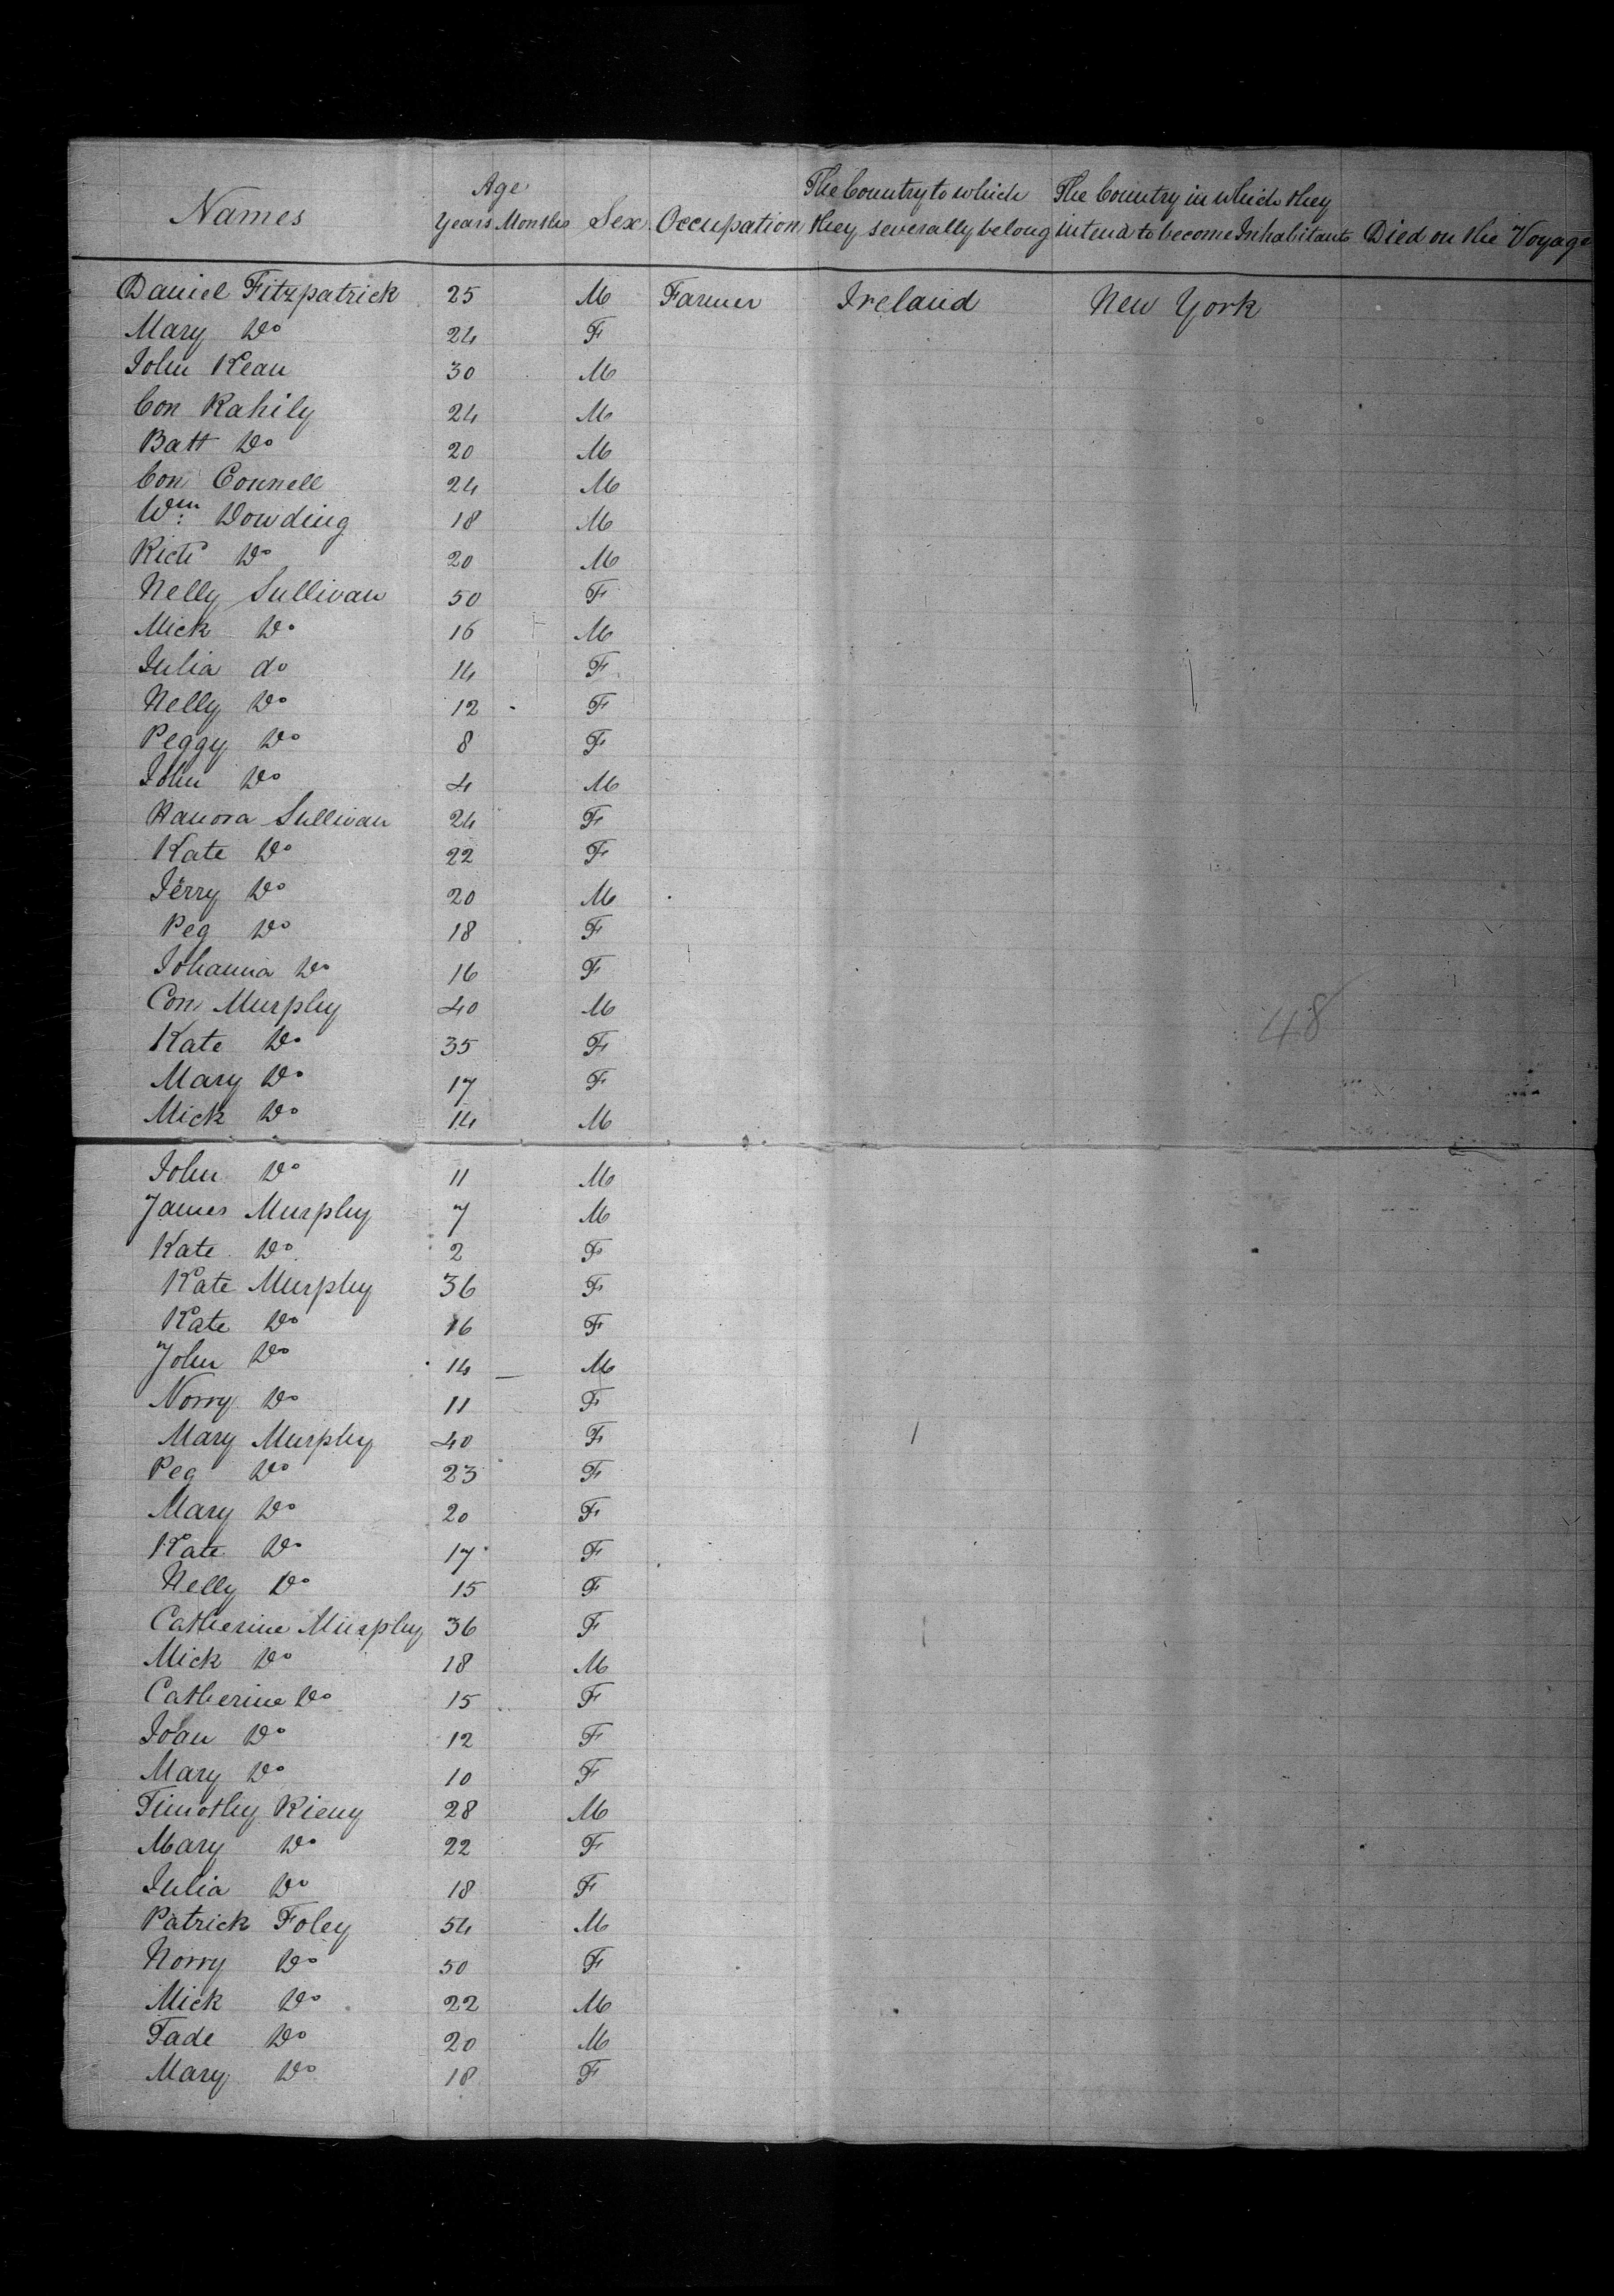 Names Age Years Months Sex Occupation The Country to which they severally belong The Country in which they intend to become Inhabitants Died on the Voyage
Daniel Fitzpatrick 25 M Farmer Ireland New York
Mary Do 24 F
John Kean 30 M
Con Kahily 24 M
Batt Do 20 M
Con Connell 24 M
Wm: Dowding 18 M
Richd Do 20 M
Nelly Sullivan 50 F
Mick Do 16 M
Julia do 14 F
Nelly Do 12 F
Peggy Do 8 F
John Do 4 M
Hanora Sullivan 24 F
Kate Do 22 F
Jerry Do 20 M
Peg Do 18 F
Johanna Do 16 F
Con Murphy 40 M
48
Kate Do 35 F
Mary Do 17 F
Mick Do 14 M
John Do 11 M
James Murphy 7 M
Kate Do 2 F
Kate Murphy 36 F
Kate Do 16 F
John Do 14 M
Norry Do 11 F
Mary Murphy 40 F
Peg Do 23 F
Mary Do 20 F
Kate Do 17 F
Nelly Do 15 F
Catherine Murphy 36 F
Mick Do 18 M
Catherine Do 15 F
Joan Do 12 F
Mary Do 10 F
Timothy Rieny 28 M
Mary Do 22 F
Julia Do 18 F
Patrick Foley 54 M
Norry Do 50 F
Mick Do 22 M
Tade Do 20 M
Mary Do 18 F